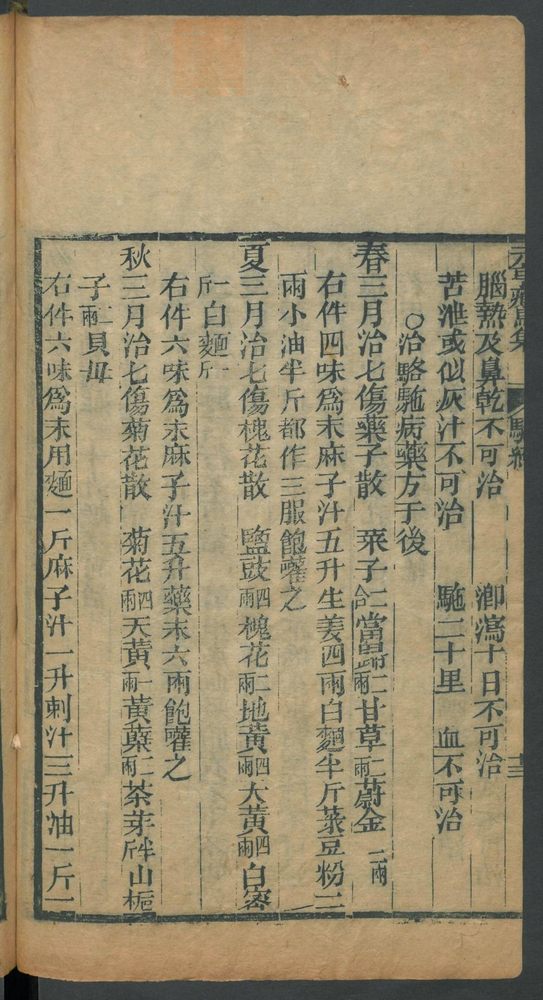 元亨療馬集 駝經 十三
腦熱及鼻乾不可治 瀉十日不可治
苦泄或似灰汁不可治 駞二十里 血不可治
○治駱駞病藥方于後
春三月治七傷藥子散 菜子二合當歸二兩甘草二兩蔚金二兩
右件四味爲末麻子汁五升生姜四兩白麵半斤菉豆粉二
兩小油半斤都作三服飽嚾之
夏三月治七傷槐花散 鹽豉四兩槐花二兩地黃四兩大黃四兩白蜜
一斤白麵一斤
右件六味爲末麻子汁五升藥末六兩飽嚾之
秋三月治七傷菊花散 菊花四兩天黃一兩黃蘗二兩茶芽半斤山梔
子二兩貝母
右件六味爲末用麵一斤麻子汁一升刺汁三升油一斤二